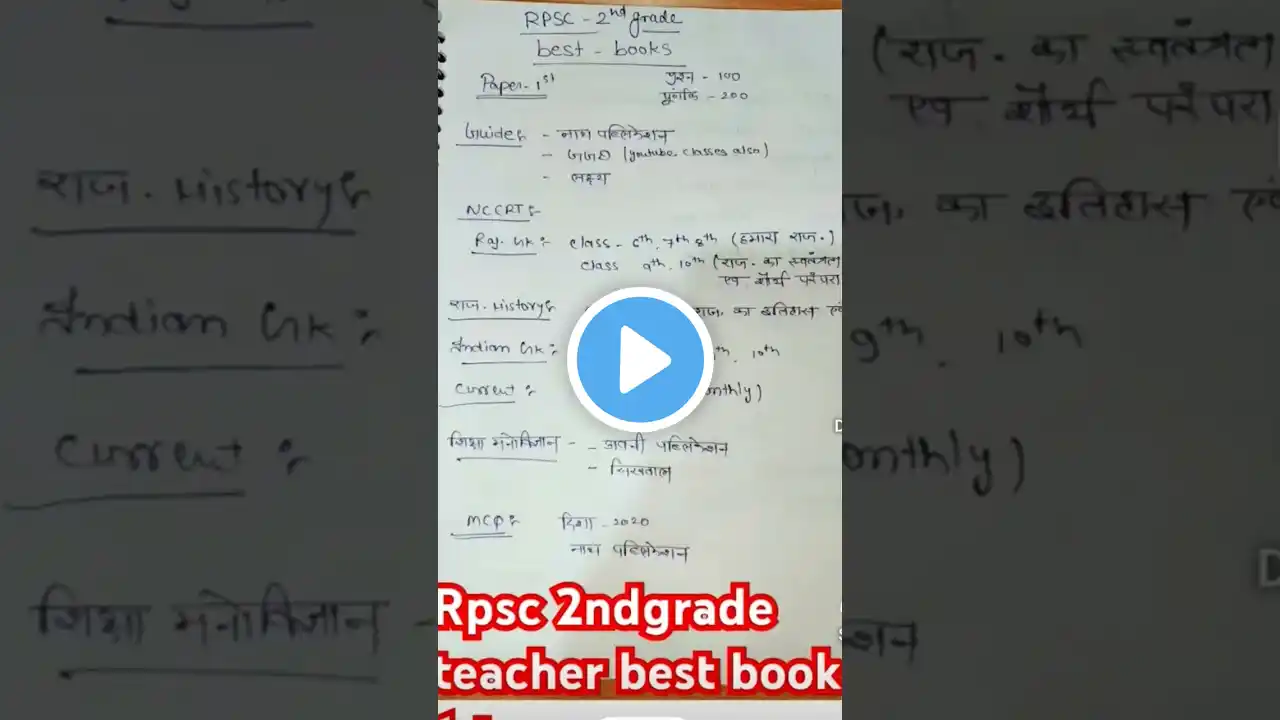 RPSC - 2nd grade
best - books
Paper - 1st
प्रश्न - 100
पूर्णांक - 200
Guide :- - नाथ पब्लिकेशन
- (youtube classes also)
- लक्ष्य
NCERT :-
Raj. Gk :- class - 6th, 7th 8th (हमारा राज.)
class 9th, 10th (राज. का स्वतंत्रता
एवं शौर्य परंपरा
राज. History :- राज. का इतिहास एवं
Indian Gk :- 9th. 10th
Current :- monthly)
शिक्षा मनोविज्ञान - - अवनी पब्लिकेशन
-
MCQ :- दिशा - 2020
नाथ पब्लिकेशन
Rpsc 2ndgrade
teacher best book